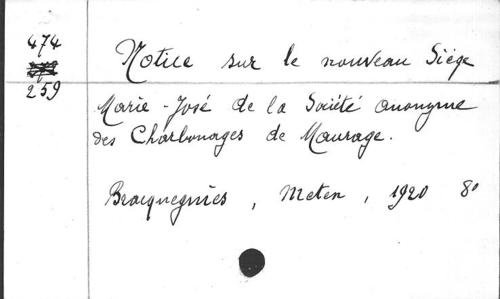 474
259
Notice sur le nouveau Siège
Marie-José de la Société anonyme
des Charbonages de Maurage.
Bracquegnies, Meten, 1920 8°